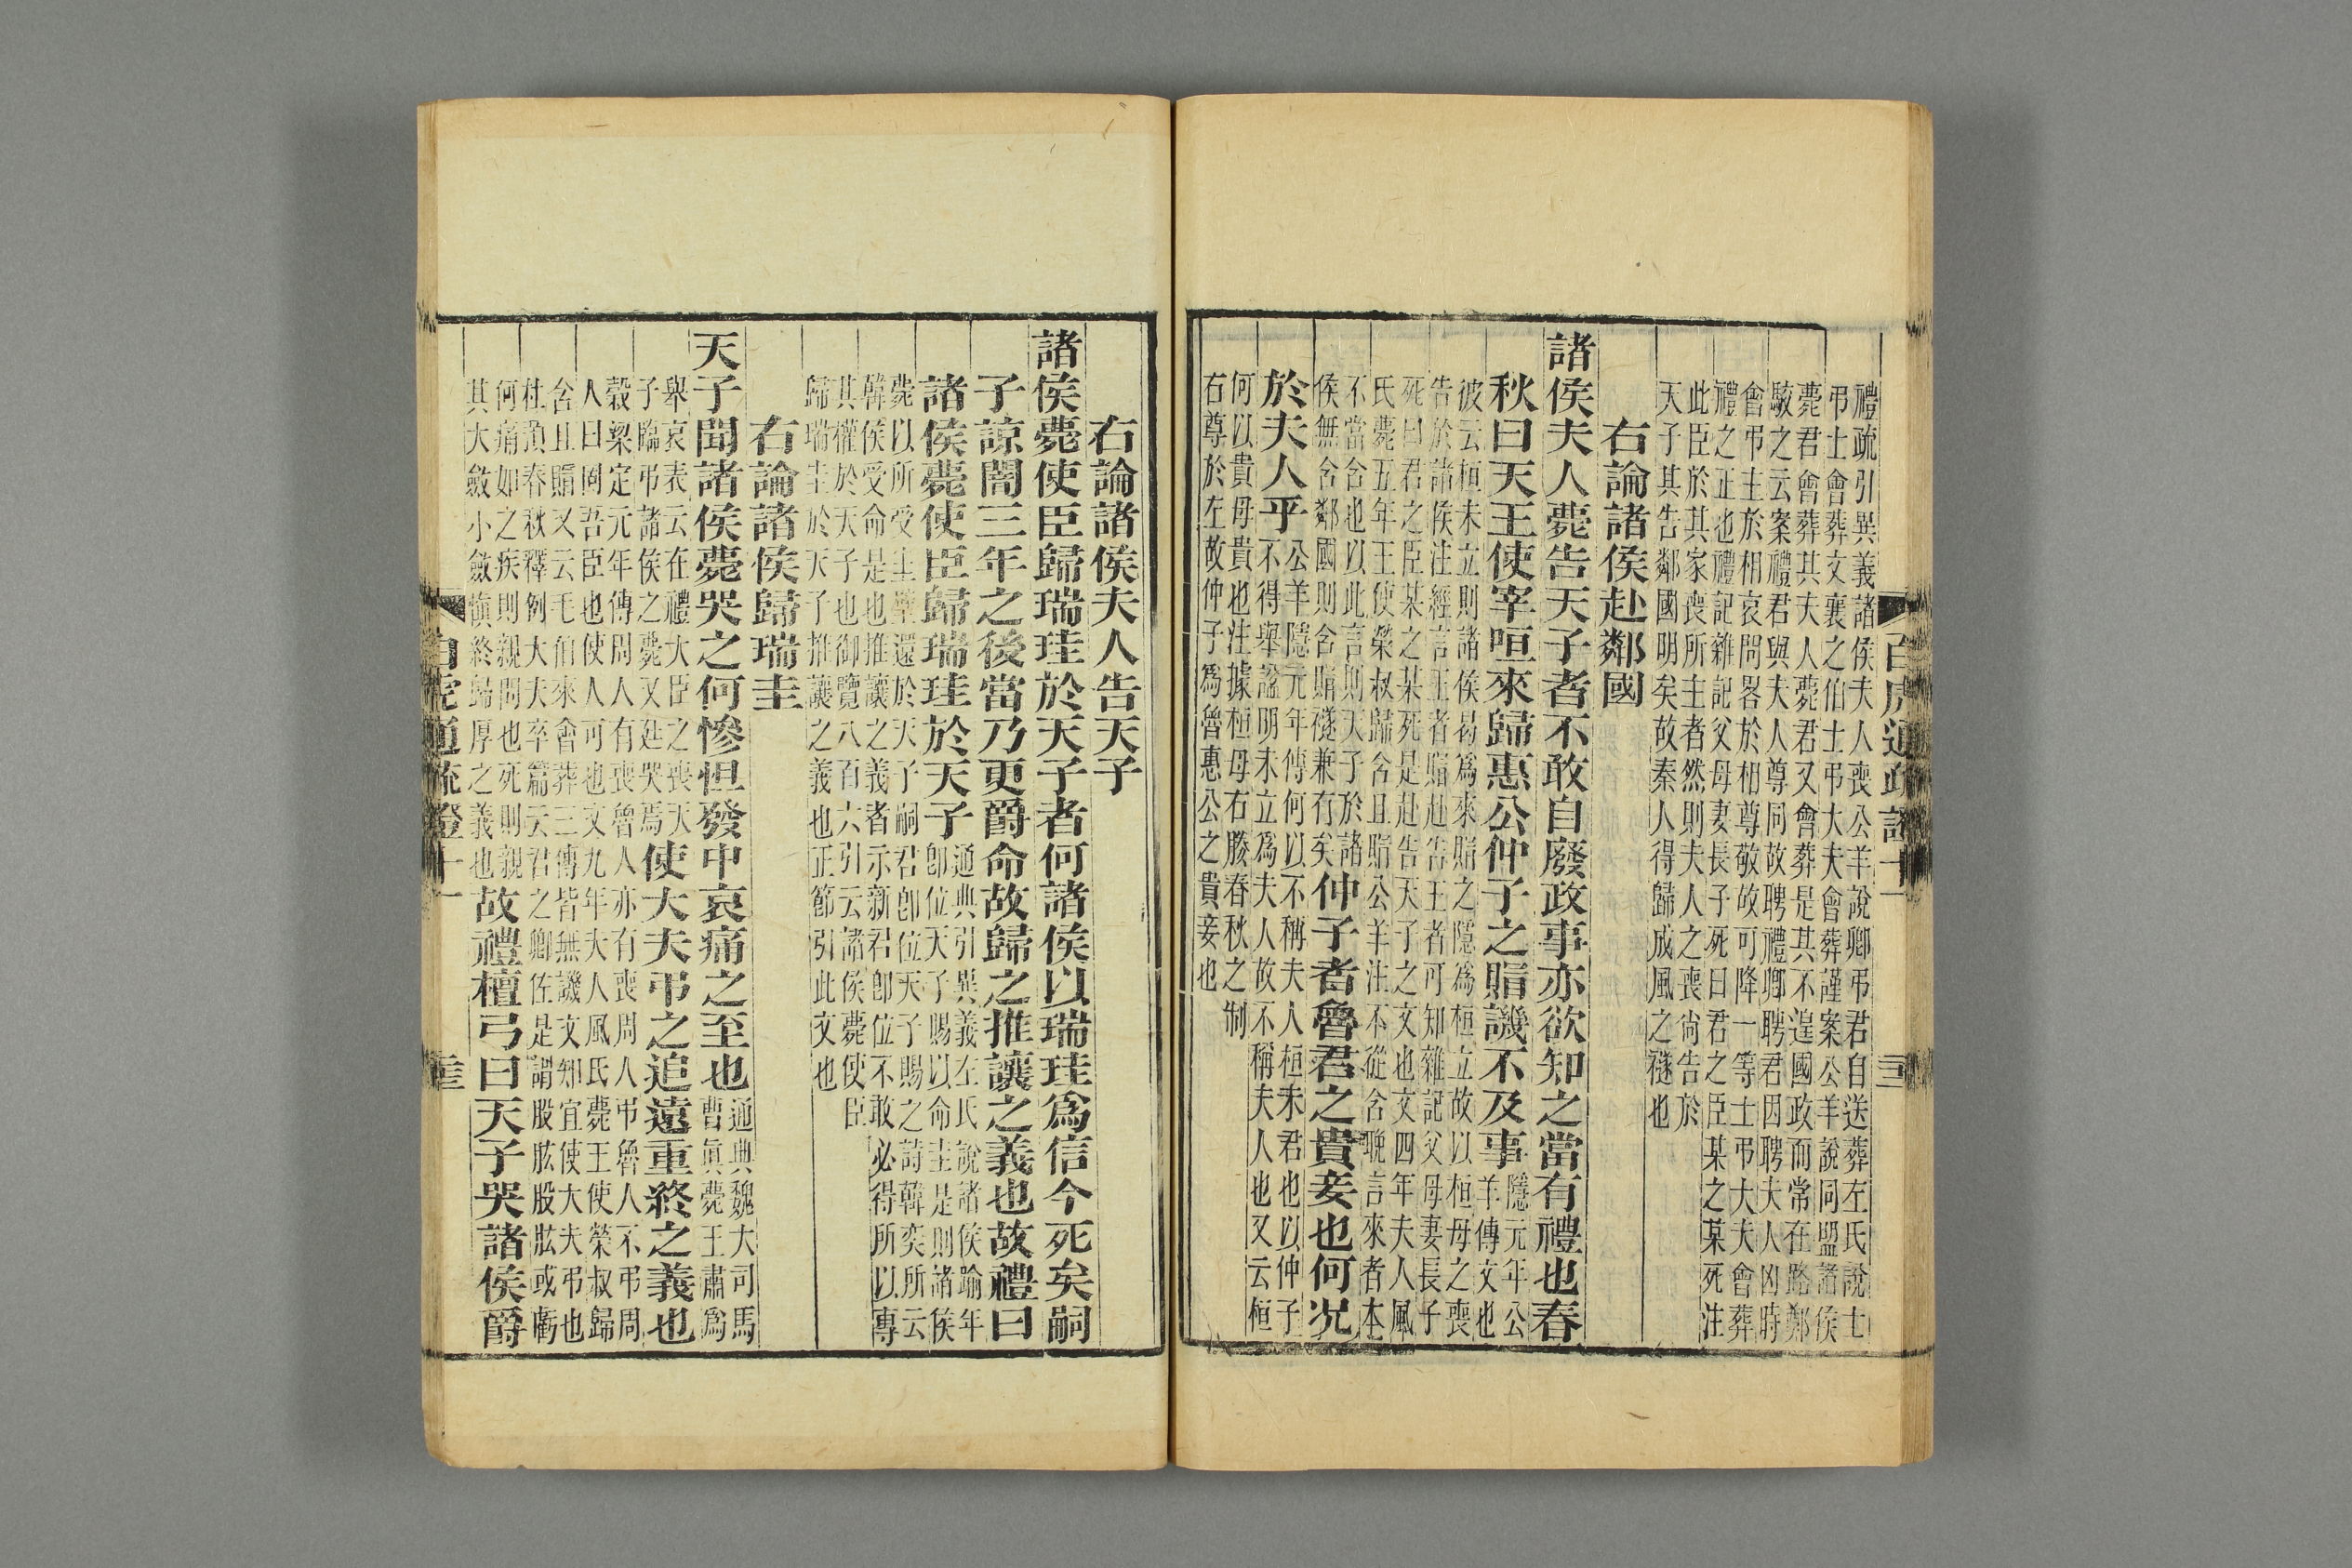 禮疏引異義諸侯夫人喪公羊說卿弔君自送葬左氏說士
弔士會葬文襄之伯士弔大夫會葬謹案公羊說同盟諸侯
薨君會葬其夫人薨君又會葬是其不遑國政而常在路鄭
駮之云案禮君與夫人尊同故聘禮卿聘君因聘夫人凶時
會弔主於相哀問畧於相尊敬故可降一等士弔大夫會葬
禮之正也禮記雜記父母妻長子死曰君之臣某之某死注
此臣於其家喪所主者然則夫人之喪尙告於
天子其告鄰國明矣故秦人得歸成風之襚也
右論諸侯赴鄰國
諸侯夫人薨告天子者不敢自廢政事亦欲知之當有禮也春
秋曰天王使宰咺來歸惠公仲子之賵譏不及事
隱元年公
羊傳文也
彼云桓未立則諸侯曷爲來賵之隱爲桓立故以桓母之喪
告於諸侯注經言王者賵赴告王者可知雜記父母妻長子
死曰君之臣某之某死是赴告天子之文也文四年夫人風
氏薨五年王使榮叔歸含且賵公羊注不從含晚言來者本
不當含也以此言則天子於諸
侯無含鄰國則含賵襚兼有矣
仲子者魯君之貴妾也何況
於夫人乎
公羊隱元年傳何以不稱夫人桓未君也以仲子
不得舉謚明未立爲夫人故不稱夫人也又云桓
何以貴母貴也注據桓母右媵春秋之制
右尊於左故仲子爲魯惠公之貴妾也
白虎通疏證十一
右論諸侯夫人告天子
諸侯薨使臣歸瑞珪於天子者何諸侯以瑞珪爲信今死矣嗣
子諒闇三年之後當乃更爵命故歸之推讓之義也故禮曰
諸侯薨使臣歸瑞珪於天子
通典引異義左氏說諸侯踰年
卽位天子賜以命圭是則諸侯
薨以所受圭璧還於天子嗣君卽位天子賜之詩韓奕所云
韓侯受命是也推讓之義者示新君卽位不敢必得所以專
其權於天子也御覽八百六引云諸侯薨使臣
歸瑞圭於天子推讓之義也正節引此文也
右論諸侯歸瑞圭
天子聞諸侯薨哭之何慘怛發中哀痛之至也
通典魏大司馬
曹真薨王肅爲
舉哀表云在禮大臣之喪天
子臨弔諸侯之薨又廷哭焉
使大夫弔之追遠重終之義也
穀梁定元年傳周人有喪魯人亦有喪周人弔魯人不弔周
人曰固吾臣也使人可也文九年夫人風氏薨王使榮叔歸
含且賵又云毛伯來會葬三傳皆無譏文知宜使大夫弔也
杜預春秋釋例大夫卒篇云君之卿佐是謂股肱股肱或虧
何痛如之疾則親問也死則親
其大斂小斂愼終歸厚之義也
故禮檀弓曰天子哭諸侯爵
白虎通疏證十一